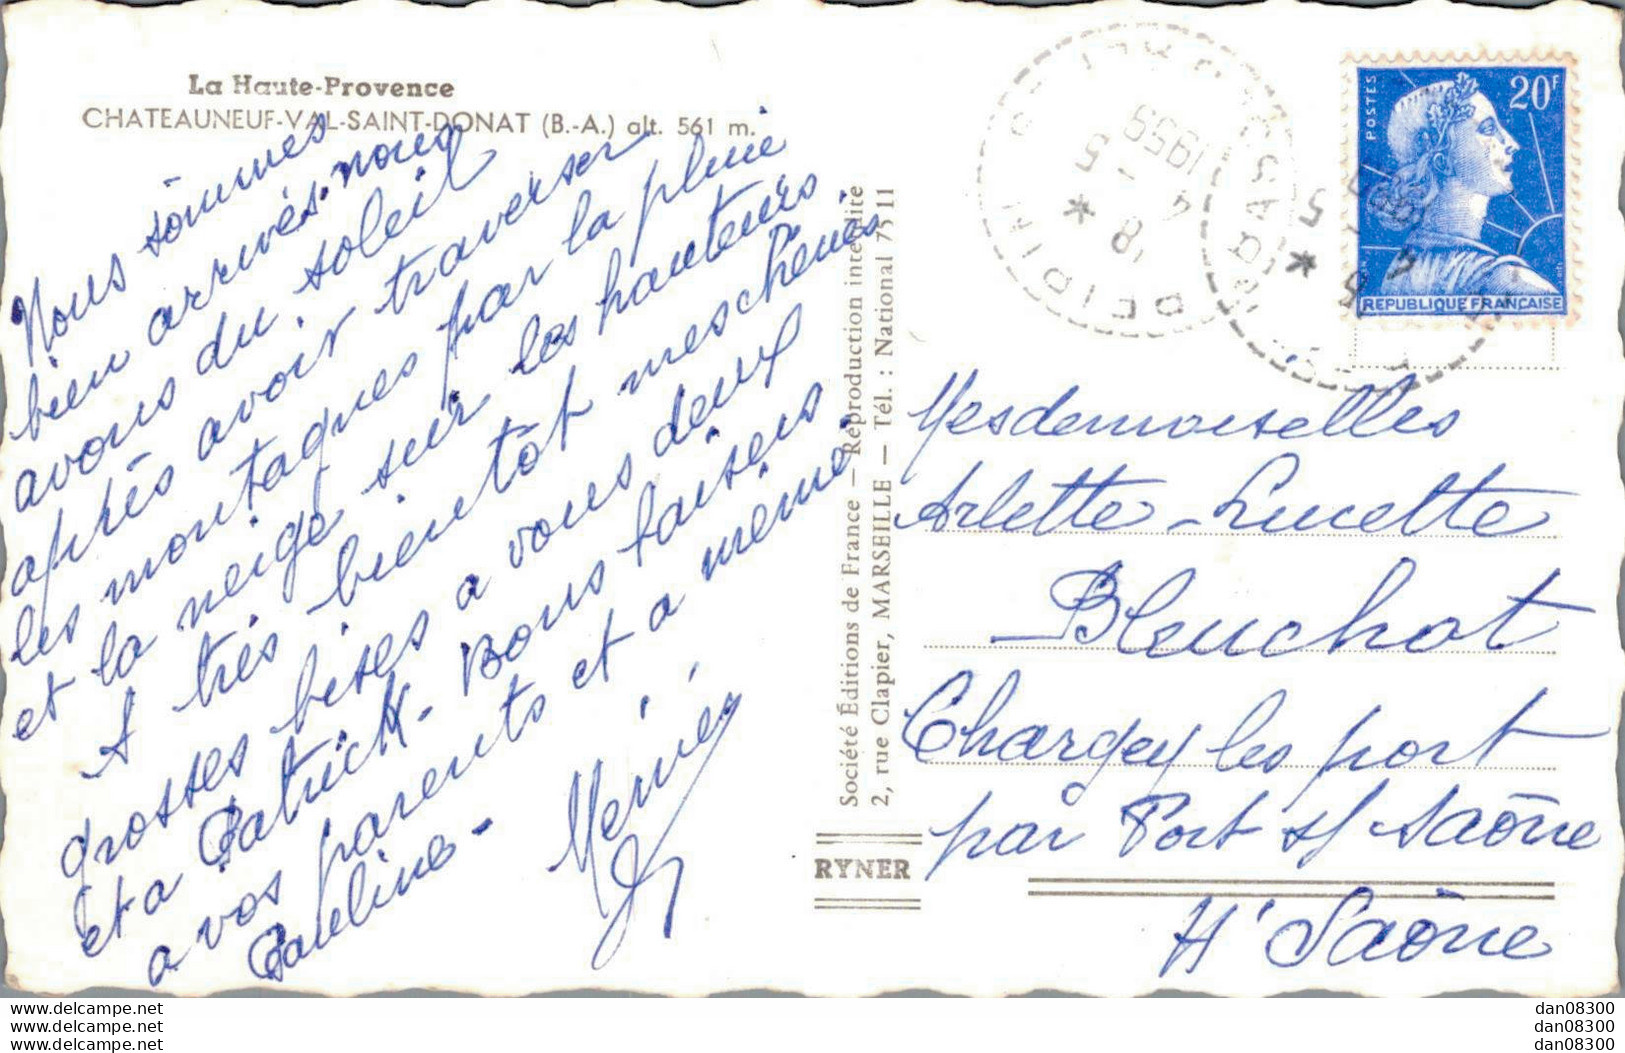 La Haute-Provence
CHATEAUNEUF-VAL-SAINT-DONAT (B.-A.) alt. 561 m.
Nous sommes
bien arrivés. nous
avons du soleil
après avoir traverser
les montagnes par la pluie
et la neige sur les hauteurs
A très bientôt mes chéries
grosses bises a vous deux
et a Patrick. Bons baisers
a vos parents et a mémé.
Pauline-
Société Éditions de France — Reproduction interdite
2, rue Clapier, MARSEILLE — Tél. : National 75 11
RYNER
POSTES
20F
REPUBLIQUE FRANCAISE
18 *
4 - 5
1959
Mesdemoiselles
Arlette - Lucette
Bleuchot
Chargey les port
par Port s/ Saône
Hte Saône
delcampe.net
delcampe.net
delcampe.net
dan08300
dan08300
dan08300